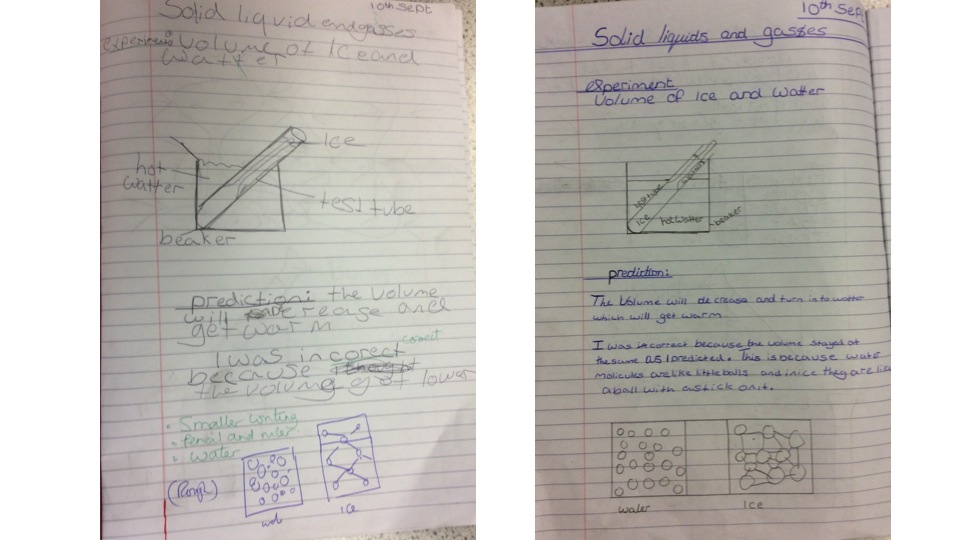 10th Sept
Solid liquid and gasses
experiment Volume of Ice and
Watter
Ice
hot
watter
test tube
beaker
prediction: the Volume
will decrease and
get warm
I was incorect
correct
because
the volume got lower
• Smaller writing
• pencil and ruler
• water
ice
10th Sep
Solid liquids and gasses
experiment
Volume of Ice and Watter
test tube
Ice
hot watter
beaker
prediction:
The Volume will decrease and turn into watter
which will get warm
I was incorrect because the volume stayed at
the same as I predicted. This is because
molicules are like little balls and in ice they are
a ball with a stick on it.
water
ice